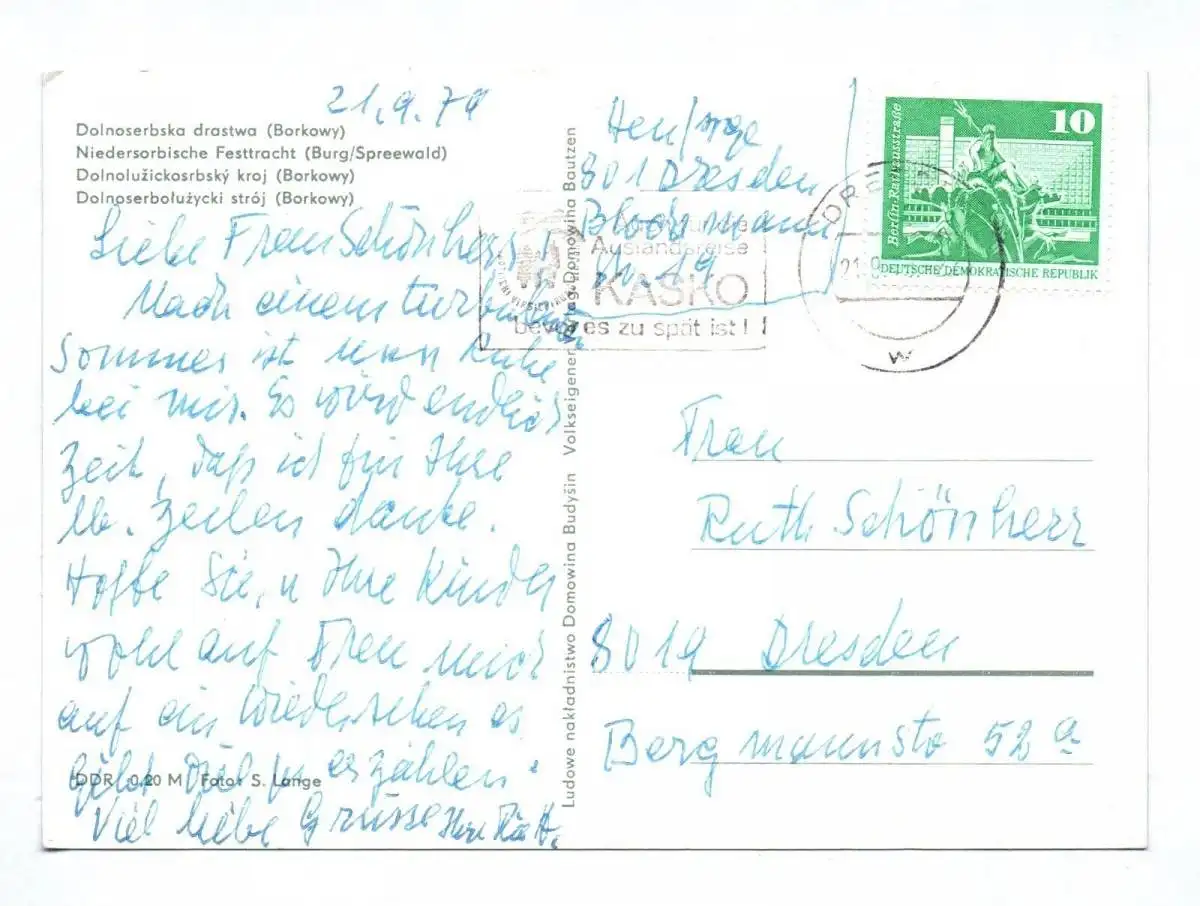 21.9.79
Dolnoserbska drastwa (Borkowy)
Niedersorbische Festtracht (Burg/Spreewald)
Dolnolužickosrbský kroj (Borkowy)
Dolnoserbołużycki strój (Borkowy)
Liebe Frau Schönherr,
Nach einem turbulenten
Sommer ist nun Ruhe
bei mir. Es wird endlich
Zeit, daß ich für Ihre
lb. Zeilen danke.
Hoffe Sie, u Ihre Kinder
wohl auf Freu mich
auf ein Wiedersehen es
gibt viel zu erzählen.
Viel liebe Grüsse Ihre
DDR 0,20 M Foto: S. Lange
Ludowe nakładnistwo Domowina Budyšin Volkseigener Verlag Domowina Bautzen
801 Dresden
Blochmann
19
Auslandsreise
KASKO
bevor es zu spät ist!
DRESDEN
21.9
w
10
Berlin-Rathausstraße
DEUTSCHE DEMOKRATISCHE REPUBLIK
Frau
Ruth Schönherr
8019 Dresden
Bergmannstr 52 a